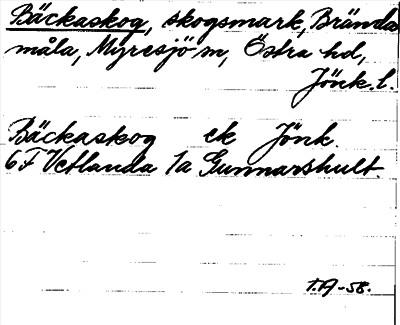 Bäckaskog, skogsmark, Brända
måla, Myresjö sn, Östra hd,
Jönk. l.
Bäckaskog ek Jönk.
6F Vetlanda 1a Gunnarshult.
T.A-58.